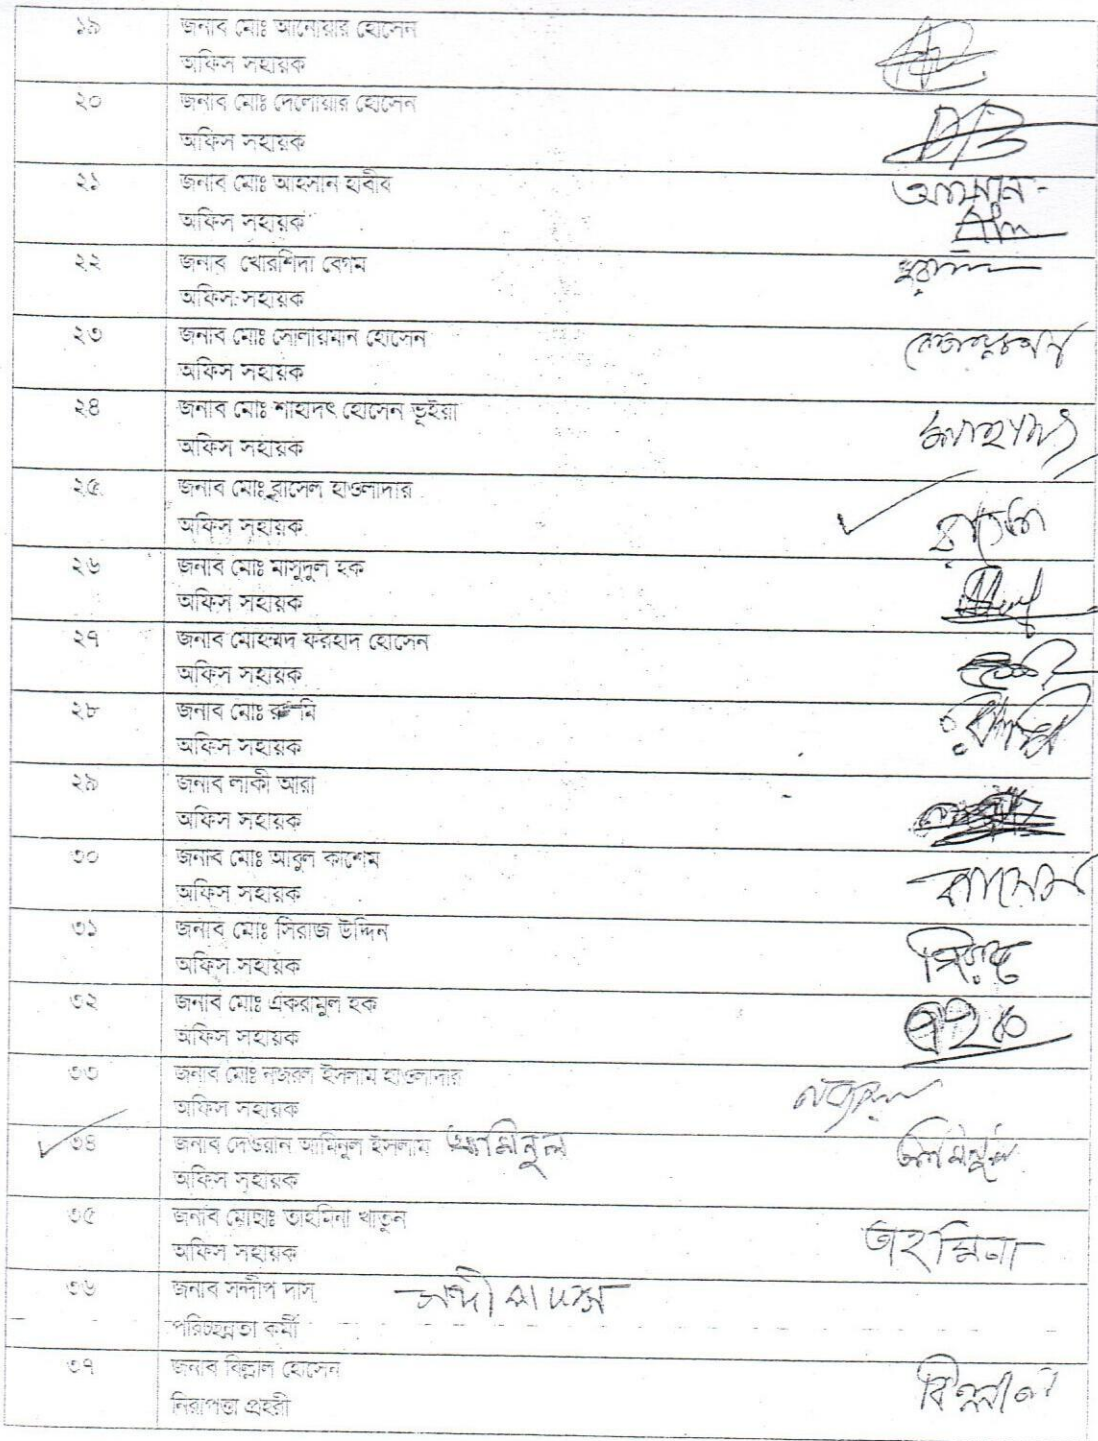 ১৯ জনাব মোঃ আনোয়ার হোসেন
অফিস সহায়ক
২০ জনাব মোঃ দেলোয়ার হোসেন
অফিস সহায়ক
২১ জনাব মোঃ আহসান হাবীব
অফিস সহায়ক
২২ জনাব খোরশিদা বেগম
অফিস সহায়ক
২৩ জনাব মোঃ সোলায়মান হোসেন
অফিস সহায়ক
২৪ জনাব মোঃ শাহাদৎ হোসেন ভূইয়া
অফিস সহায়ক
শাহাদৎ
২৫ জনাব মোঃ রাসেল হাওলাদার
অফিস সহায়ক
রাসেল
২৬ জনাব মোঃ মাসুদুল হক
অফিস সহায়ক
২৭ জনাব মোহম্মদ ফরহাদ হোসেন
অফিস সহায়ক
২৮ জনাব মোঃ
অফিস সহায়ক
২৯ জনাব লাকী আরা
অফিস সহায়ক
৩০ জনাব মোঃ আবুল কাশেম
অফিস সহায়ক
৩১ জনাব মোঃ সিরাজ উদ্দিন
অফিস সহায়ক
সিরাজ
৩২ জনাব মোঃ একরামুল হক
অফিস সহায়ক
৩৩ জনাব মোঃ নজরুল ইসলাম হাওলাদার
অফিস সহায়ক
নজরুল
৩৪ জনাব দেওয়ান আমিনুল ইসলাম আমিনুল আমিনুল
অফিস সহায়ক
৩৫ জনাব মোছাঃ তাহমিনা খাতুন
অফিস সহায়ক তাহমিনা
৩৬ জনাব সন্দীপ দাস সন্দীপ দাস
পরিচ্ছন্নতা কর্মী
৩৭ জনাব বিল্লাল হোসেন বিল্লাল
নিরাপত্তা প্রহরী